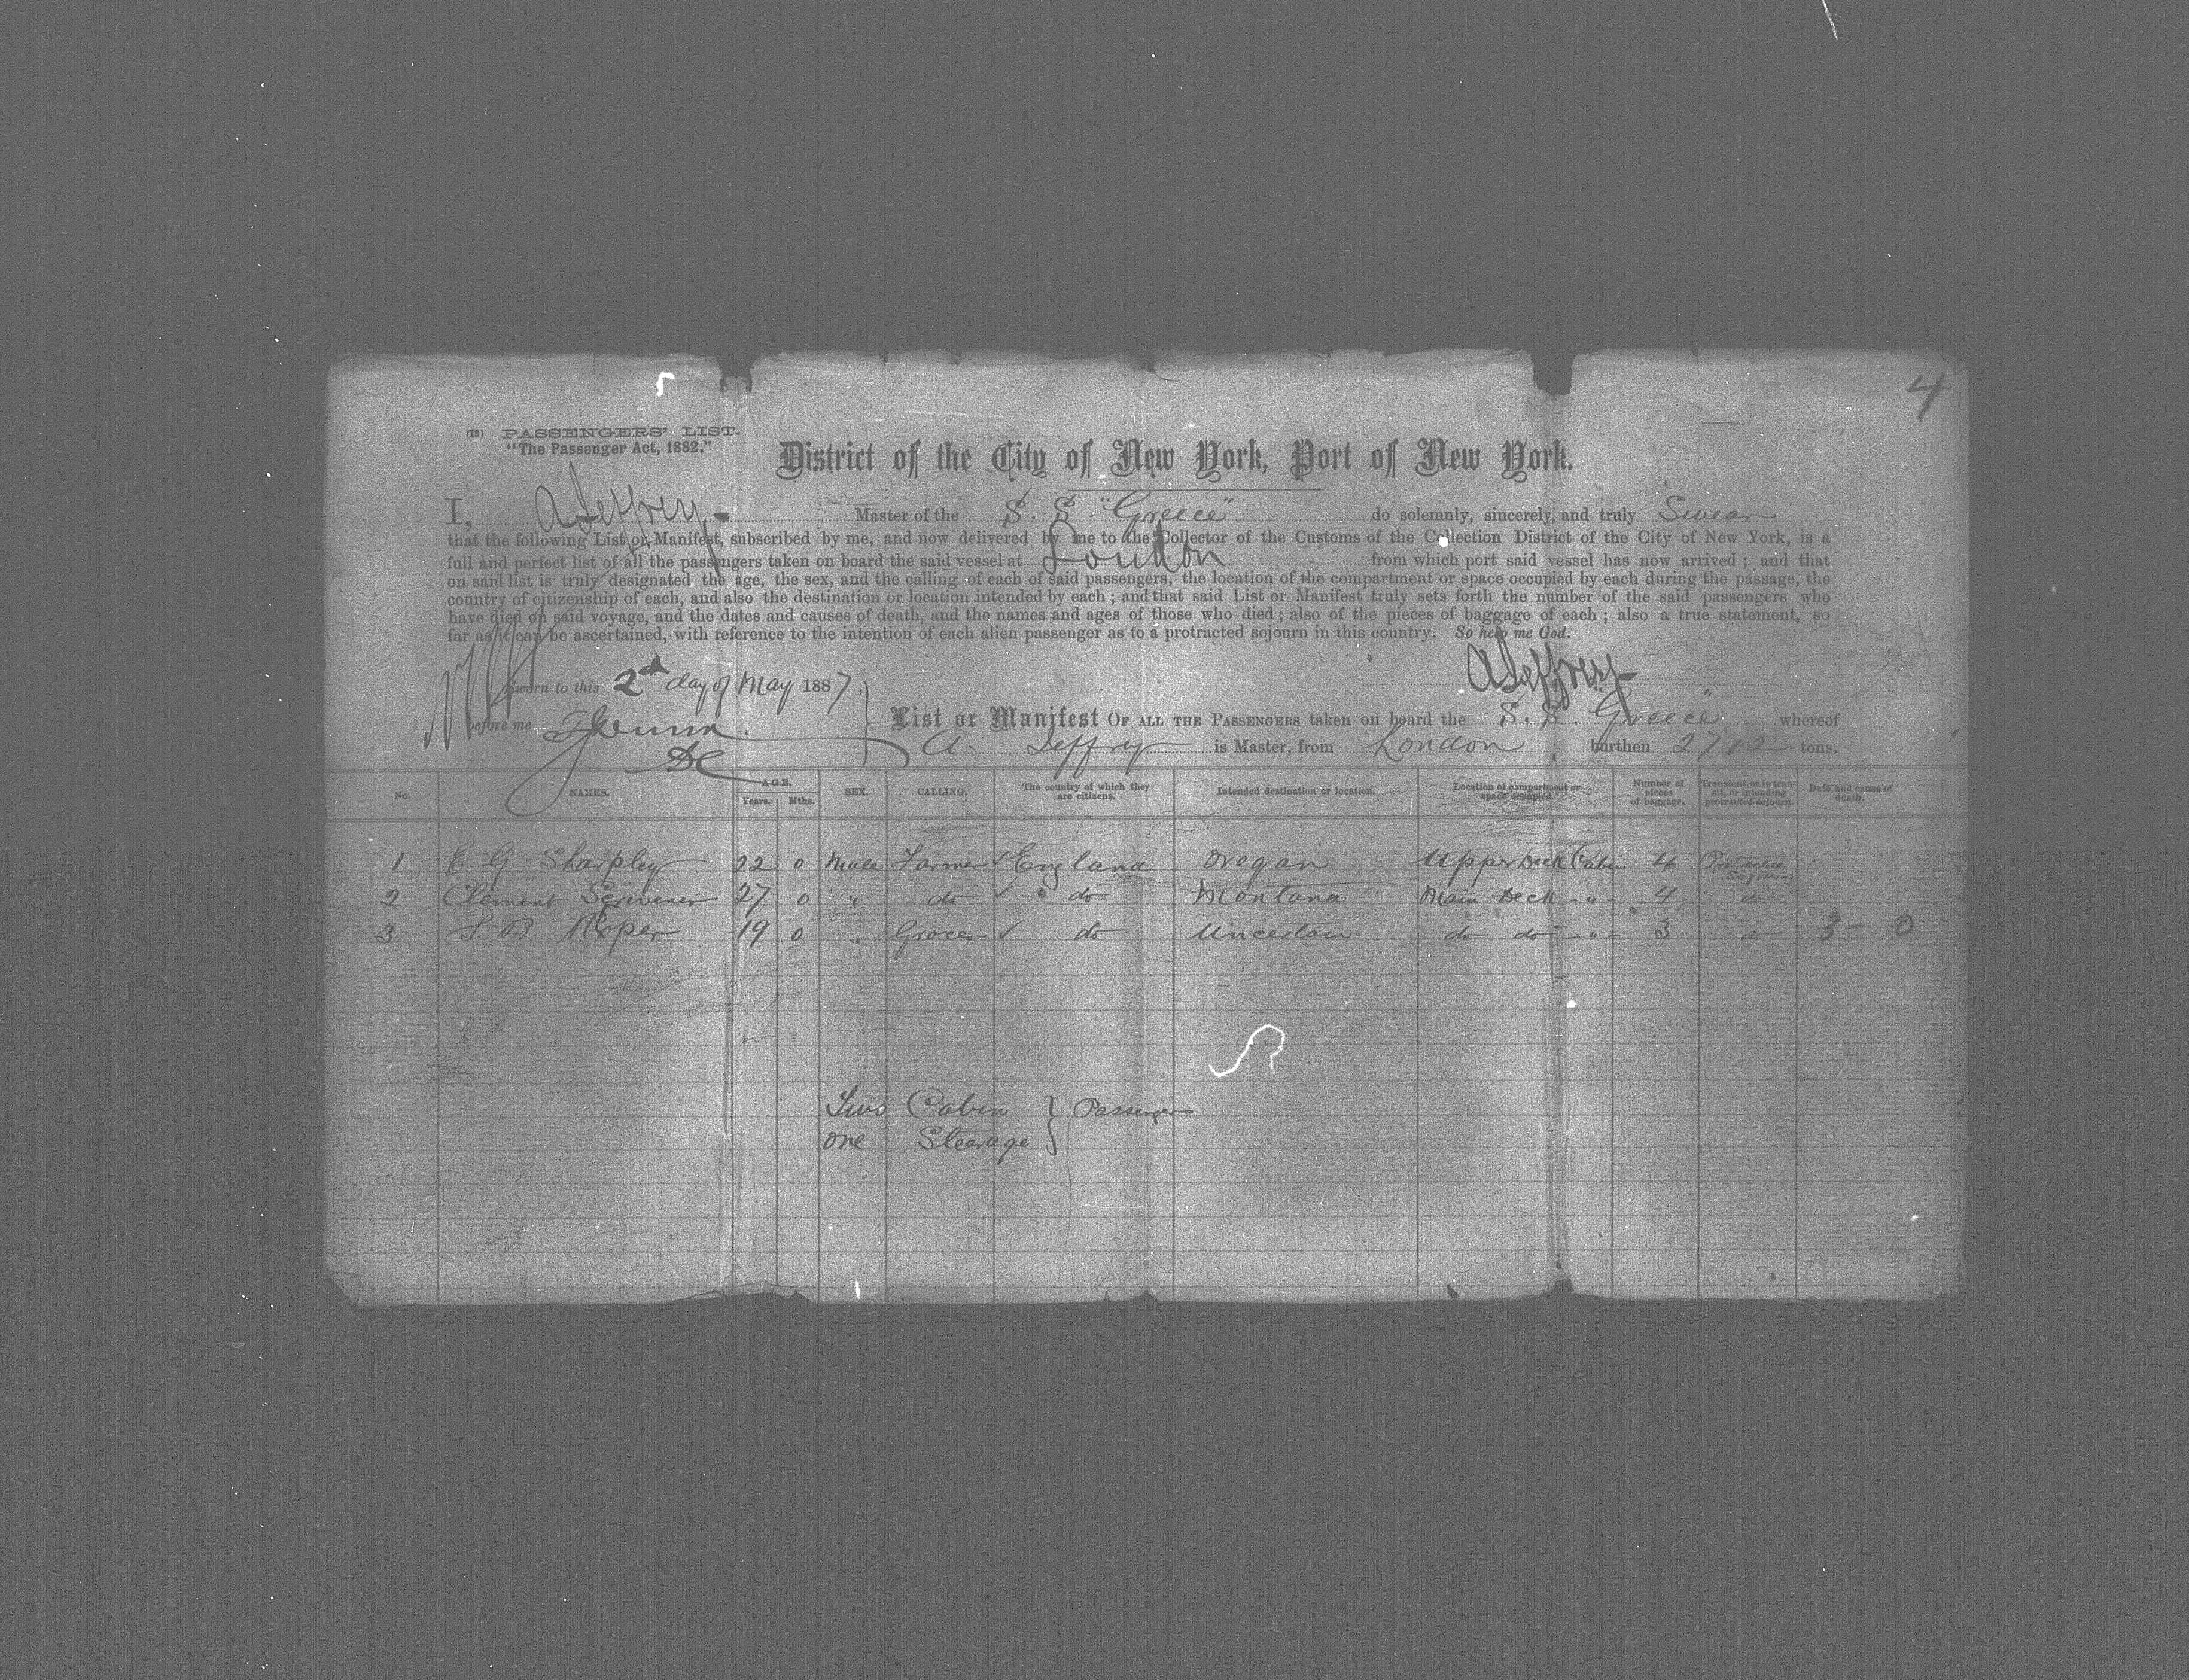 4
(18) PASSENGERS' LIST.
"The Passenger Act, 1882."
District of the City of New York, Port of New York.
I, A Jeffrey Master of the S. S "Greece" do solemnly, sincerely, and truly Swear
that the following List or Manifest, subscribed by me, and now delivered by me to the Collector of the Customs of the Collection District of the City of New York, is a
full and perfect list of all the passengers taken on board the said vessel at London from which port said vessel has now arrived ; and that
on said list is truly designated the age, the sex, and the calling of each of said passengers, the location of the compartment or space occupied by each during the passage, the
country of citizenship of each, and also the destination or location intended by each ; and that said List or Manifest truly sets forth the number of the said passengers who
have died on said voyage, and the dates and causes of death, and the names and ages of those who died ; also of the pieces of baggage of each ; also a true statement, so
far as it can be ascertained, with reference to the intention of each alien passenger as to a protracted sojourn in this country. So help me God.
A Jeffrey
Sworn to this 2nd day of May 1887.
before me
List or Manifest OF ALL THE PASSENGERS taken on board the S. S. "Greece" whereof
A. Jeffrey is Master, from London burthen 2712 tons.
No. NAMES. AGE. Years. Mths. SEX. CALLING. The country of which they are citizens. Intended destination or location. Location of compartment or space occupied. Number of pieces of baggage. Transient, or in transit, or intending protracted sojourn. Date and cause of death.
1 E. G Sharpley 22 0 Male Farmer ✓ England Oregan Upper Deck Cabin 4 Protracted Sojourn
2 Clement Scrivener 27 0 " do ✓ do Montana Main Deck - " - 4 do
3 S. B. Roper 19 0 " Grocer ✓ do Uncertain do do - " - 3 do 3 - 0
Two Cabin } Passengers
One Steerage